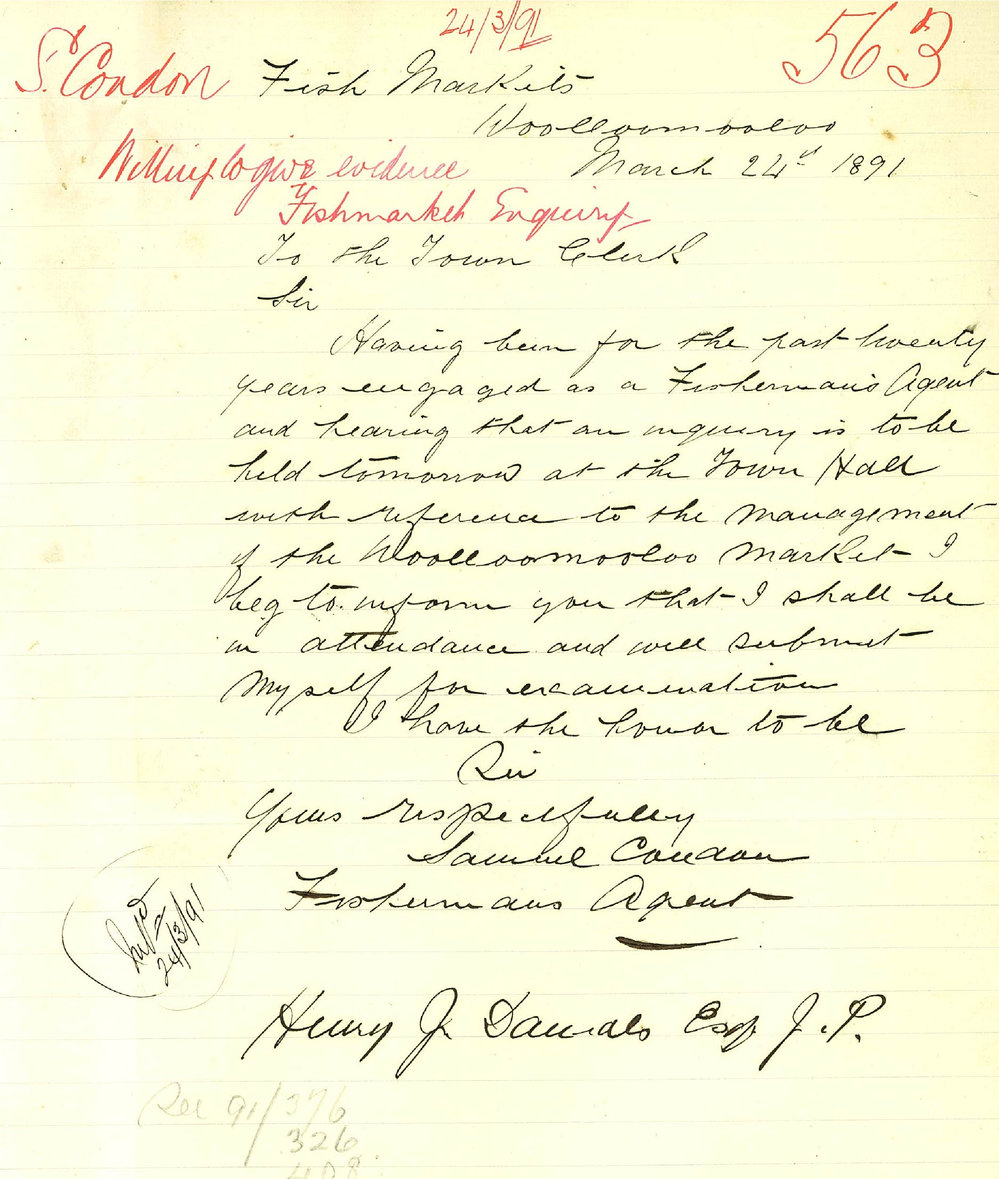 24/3/91
563
S. Condon
Fish Markets
Woolloomooloo
Willing to give evidence
March 24th 1891
Fishmarket Enquiry
To the Town Clerk
Sir
Having been for the past twenty
years engaged as a Fisherman's Agent
and hearing that an inquiry is to be
held tomorrow at the Town Hall
with reference to the management
of the Woolloomooloo Market I
beg to inform you that I shall be
in attendance and will submit
myself for examination
I have the honor to be
Sir
Yours respectfully
Samuel Condon
Fishermans Agent
24/3/91
Henry J Daniels Esq J.P.
See 91/376
326
408